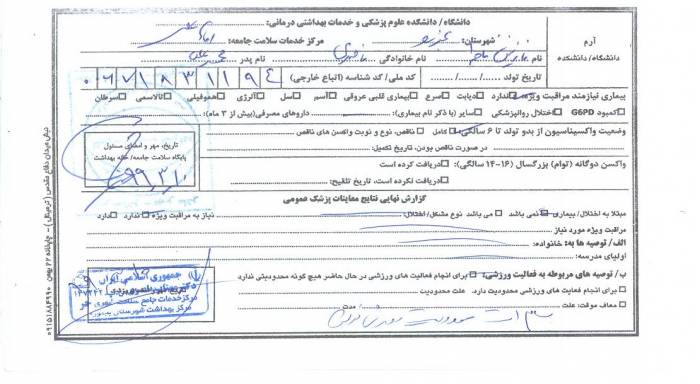 دانشگاه / دانشکده علوم پزشکی و خدمات بهداشتی درمانی:
آرم
دانشگاه/ دانشکده
شهرستان:
مرکز خدمات سلامت جامعه:
نام
نام خانوادگی
نام پدر
تاریخ تولد ...../...../.....
کد ملی/ کد شناسه (اتباع خارجی)
۰ ۶ ۷ ۱ ۸ ۳ ۱ ۱ ۹ ۴
بیماری نیازمند مراقبت ویژه: ندارد دیابت صرع بیماری قلبی عروقی آسم سل آلرژی هموفیلی تالاسمی سرطان
کمبود G6PD اختلال روانپزشکی سایر (با ذکر نام بیماری): داروهای مصرفی(بیش از ۳ ماه):
وضعیت واکسیناسیون از بدو تولد تا ۶ سالگی: کامل ناقص، نوع و نوبت واکسن های ناقص
در صورت ناقص بودن، تاریخ تکمیل:
واکسن دوگانه (توام) بزرگسال (۱۶-۱۴ سالگی): دریافت کرده است
دریافت نکرده است، تاریخ تلقیح:
تاریخ، مهر و امضای مسئول
پایگاه سلامت جامعه/ خانه بهداشت
۹۹/۳/۱۰
گزارش نهایی نتایج معاینات پزشک عمومی
مبتلا به اختلال/ بیماری نمی باشد می باشد نوع مشکل/ اختلال نیاز به مراقبت ویژه ندارد دارد
مراقبت ویژه مورد نیاز
الف/ توصیه ها به: خانواده:
اولیای مدرسه:
ب/ توصیه های مربوطه به فعالیت ورزشی: برای انجام فعالیت های ورزشی در حال حاضر هیچ گونه محدودیتی ندارد
برای انجام فعالیت های ورزشی محدودیت دارد. علت محدودیت
معاف موقت: علت مدت
جمهوری اسلامی ایران
مرکز خدمات جامع سلامت شهری
مرکز بهداشت شهرستان بجنورد
نبش میدان دفاع مقدس (ترمینال) - چاپخانه ۲۲ بهمن ۰۹۱۵۱۸۸۴۹۹۰